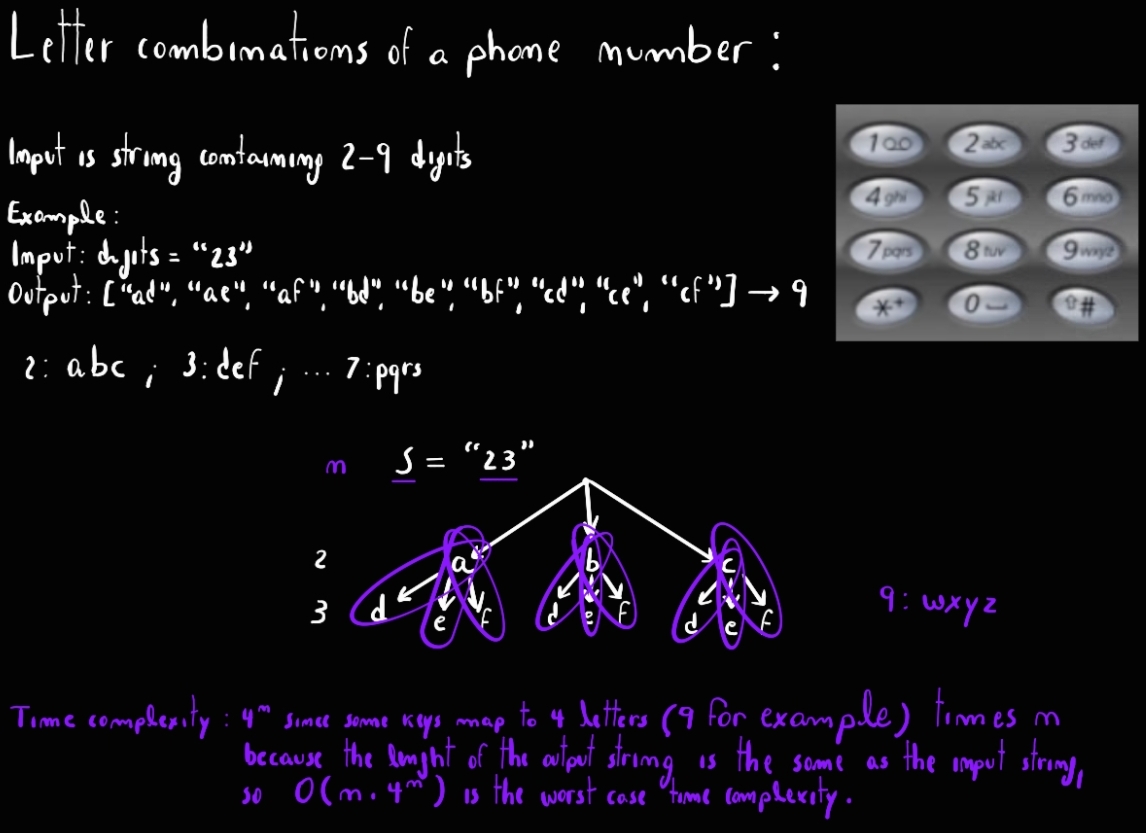 Letter combinations of a phone number:
Input is string containing 2-9 digits
Example:
Input: digits = "23"
Output: ["ad", "ae", "af", "bd", "be", "bf", "cd", "ce", "cf"] → 9
2: abc ; 3: def ; ... 7: pqrs
1 2 abc 3 def
4 ghi 5 jkl 6 mno
7 pqrs 8 tuv 9 wxyz
*+ 0 #
n S = "23"
2 a b c
3 d e f d e f d e f
9: wxyz
Time complexity: 4^n since some keys map to 4 letters (9 for example) times n
because the lenght of the output string is the same as the input string,
so O(n · 4^n) is the worst case time complexity.